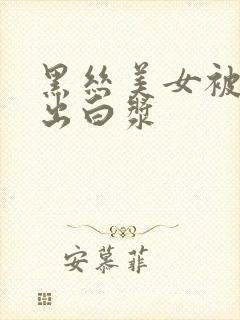 黑丝美女被
出白浆
安慕菲